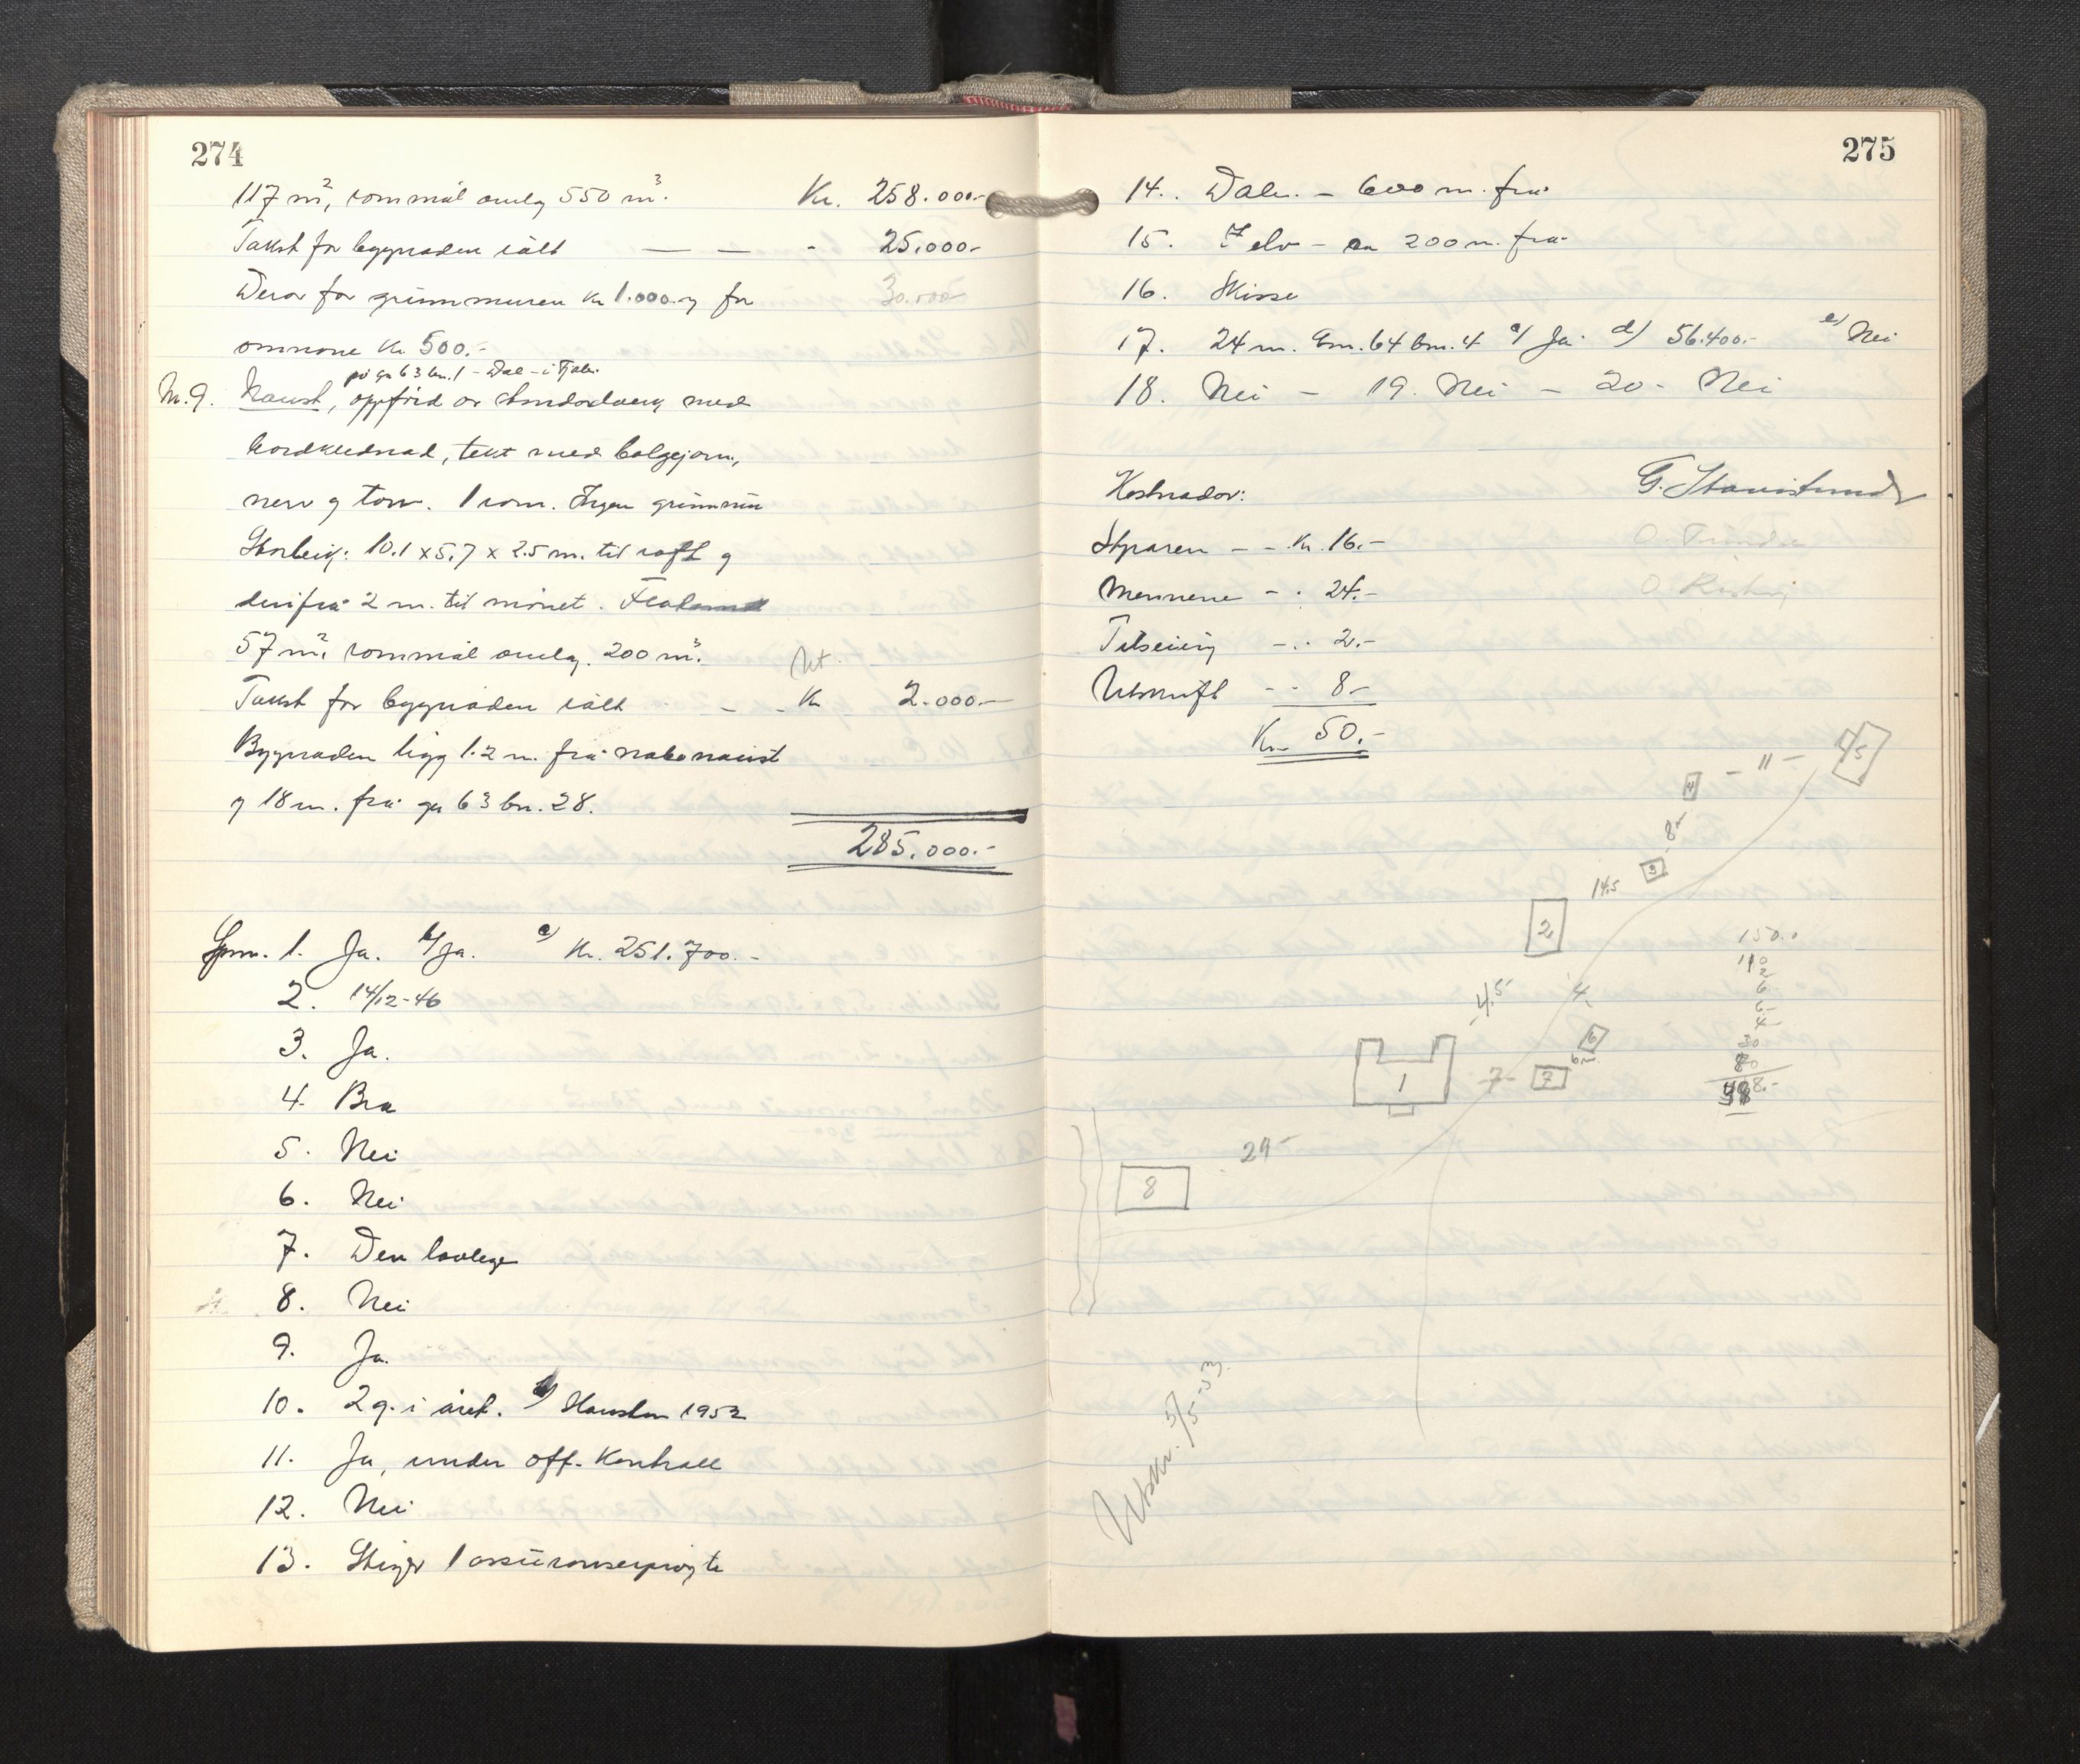 274
117 m², rommål omlag 550 m³. Kr. 258.000.-
Takst for bygnaden ialt — — - 25.000.-
Derav for grunnmuren kr 1.000.- og for 30.000
omnane kr 500.-
på gn 63 bn. 1 - Dale - i Fjaler
M.9. Naust, oppførd av stenderverk med
bordklednad, tekt med bølgejern,
nerv og torv. 1 rom. Ingen grunnmur
Storleik: 10.1 x 5.7 x 2.5 m. til raft og
derifrå 2 m. til mønet.
57 m², rommål omlag. 200 m³.
Takst for bygnaden ialt - - Kr 2.000.-
Bygnaden ligg 1.2 m. frå nabonaust
og 18 m. frå gn 63 bn. 28.
285.000.-
Spm. 1. Ja. b/ Ja. c) Kr. 251.700.-
2. 14/12-46
3. Ja.
4. Bra
5. Nei
6. Nei
7. Den lovlege
8. Nei
9. Ja.
10. 2 g. i året. Hausten 1952
11. Ja, under off. kontroll
12. Nei
13. Stiger 1 assuransesprøyte
275
14. Dale. - 600 m. frå
15. I elv - ca 200 m. frå
16. Skisse
17. 24 m. Gn. 64 bn. 4 c/ Ja d) 56.400.- e) Nei
18. Nei - 19. Nei - 20. Nei
Kostnader:
Styraren - - Kr. 16.-
Mennene - - 24.-
Tilseiing - - 2.-
Utskrift - - 8.-
Kr 50.-
- 11 -
4
8 m
3
14.5
2
4.5
4
6
6 m
1
7
7
29
8
150.
110
2
6
6
4
30
80
Utskr. 5/5-53